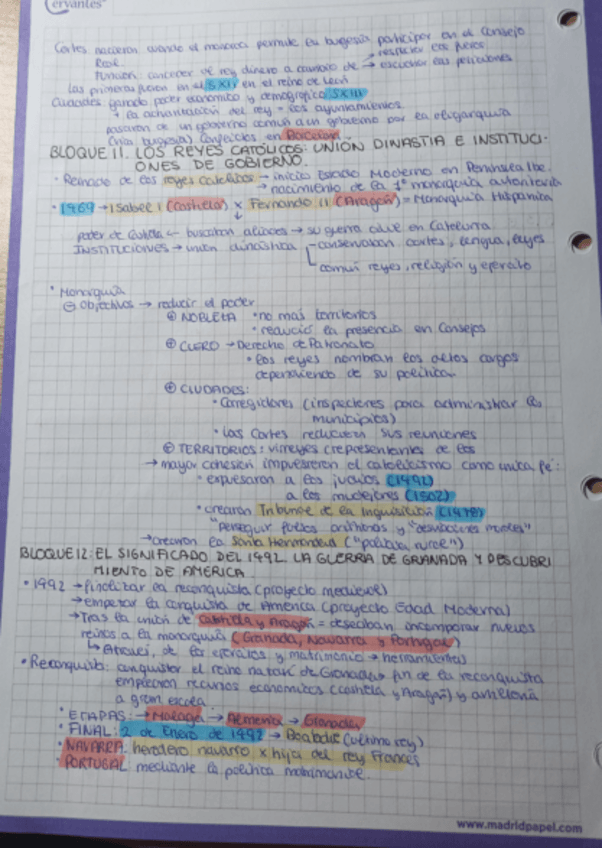 Cervantes
Cortes nacieron cuando el monarca permite la burguesía participar en el Consejo
Real.
→ respetar los fueros.
Función: conceder al rey dinero a cambio de → escuchar las peticiones
Las primeras fueron en el SXII en el reino de León
Ciudades ganado poder económico y demográfico SXIII
la administración del rey = los ayuntamientos.
pasaron de un gobierno común a un gobierno por la oligarquía
(alta burguesía) conflictos en Barcelona
BLOQUE 11. LOS REYES CATÓLICOS: UNIÓN DINASTIA E INSTITUCI-
ONES DE GOBIERNO.
· Reinado de los reyes católicos → inicio Estado Moderno en Península Ibe.
→ nacimiento de la 1ª monarquía autoritaria
· 1469 → Isabel I (Castilla) x Fernando II (Aragón) = Monarquía Hispánica
↓
poder de Castilla ← buscaban aliados → su guerra civil en Cataluña
INSTITUCIONES → unión dinástica - conservaban cortes, lengua, leyes
común reyes, religión y ejército
· Monarquía
Objetivos → reducir el poder
NOBLEZA · no más territorios
· redució la presencia en Consejos
CLERO → Derecho de Patronato
· Los reyes nombran los altos cargos
dependiendo de su política.
CIUDADES:
· Corregidores (inspectores para administrar los
municipios)
· Las Cortes reducieron sus reuniones
TERRITORIOS: virreyes (representantes de los
→ mayor cohesión impusieron el catolicismo como única fé:
· expulsaron a los judíos (1492)
a los mudéjares (1502)
· crearon Tribunal de la Inquisición (1478)
"perseguir falsos cristianos y "desviaciones morales"
→ crearon la Santa Hermandad ("policía rural")
BLOQUE 12: EL SIGNIFICADO DEL 1492. LA GUERRA DE GRANADA Y DESCUBRI
MIENTO DE AMÉRICA
· 1992 → finalizar la reconquista (proyecto medieval)
→ empezar la conquista de América (proyecto Edad Moderna)
→ Tras la unión de Castilla y Aragón = deseaban incorporar nuevos
reinos a la monarquía (Granada, Navarra y Portugal)
de los ejércitos y matrimonio → herramientas
· Reconquista: conquistar el reino nazarí de Granada → fin de la reconquista
emplearon recursos económicos (Castilla y Aragón) y artillería
a gran escala
· ETAPAS: → Málaga → Almería → Granada
· FINAL: 2 de Enero de 1992 → Boabdil (último rey)
· NAVARRA: heredero navarro x hija del rey Francés
· PORTUGAL: mediante la política matrimonial.
www.madridpapel.com